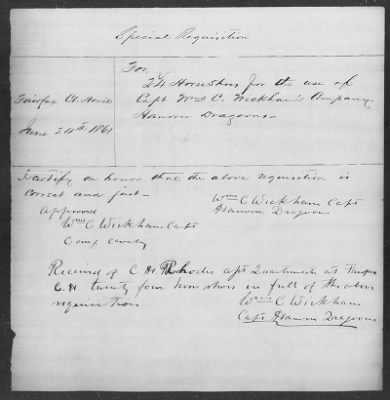 Special Requisition
For
24 Horse Shoes for the use of
Fairfax Ct. House
Capt Wms C. Wickham's Company
Hanover Dragoons
June 24th 1861
I certify on honor that the above requisition is
correct and just
Wms C Wickham Capt
Hanover Dragoons
Approved
Wms C Wickham Capt
Comg cavalry
Received of C H Rhodes Quartermaster at
C. H twenty four horse shoes in full of the above
requisition
Wms C Wickham
Capt Hanover Dragoons